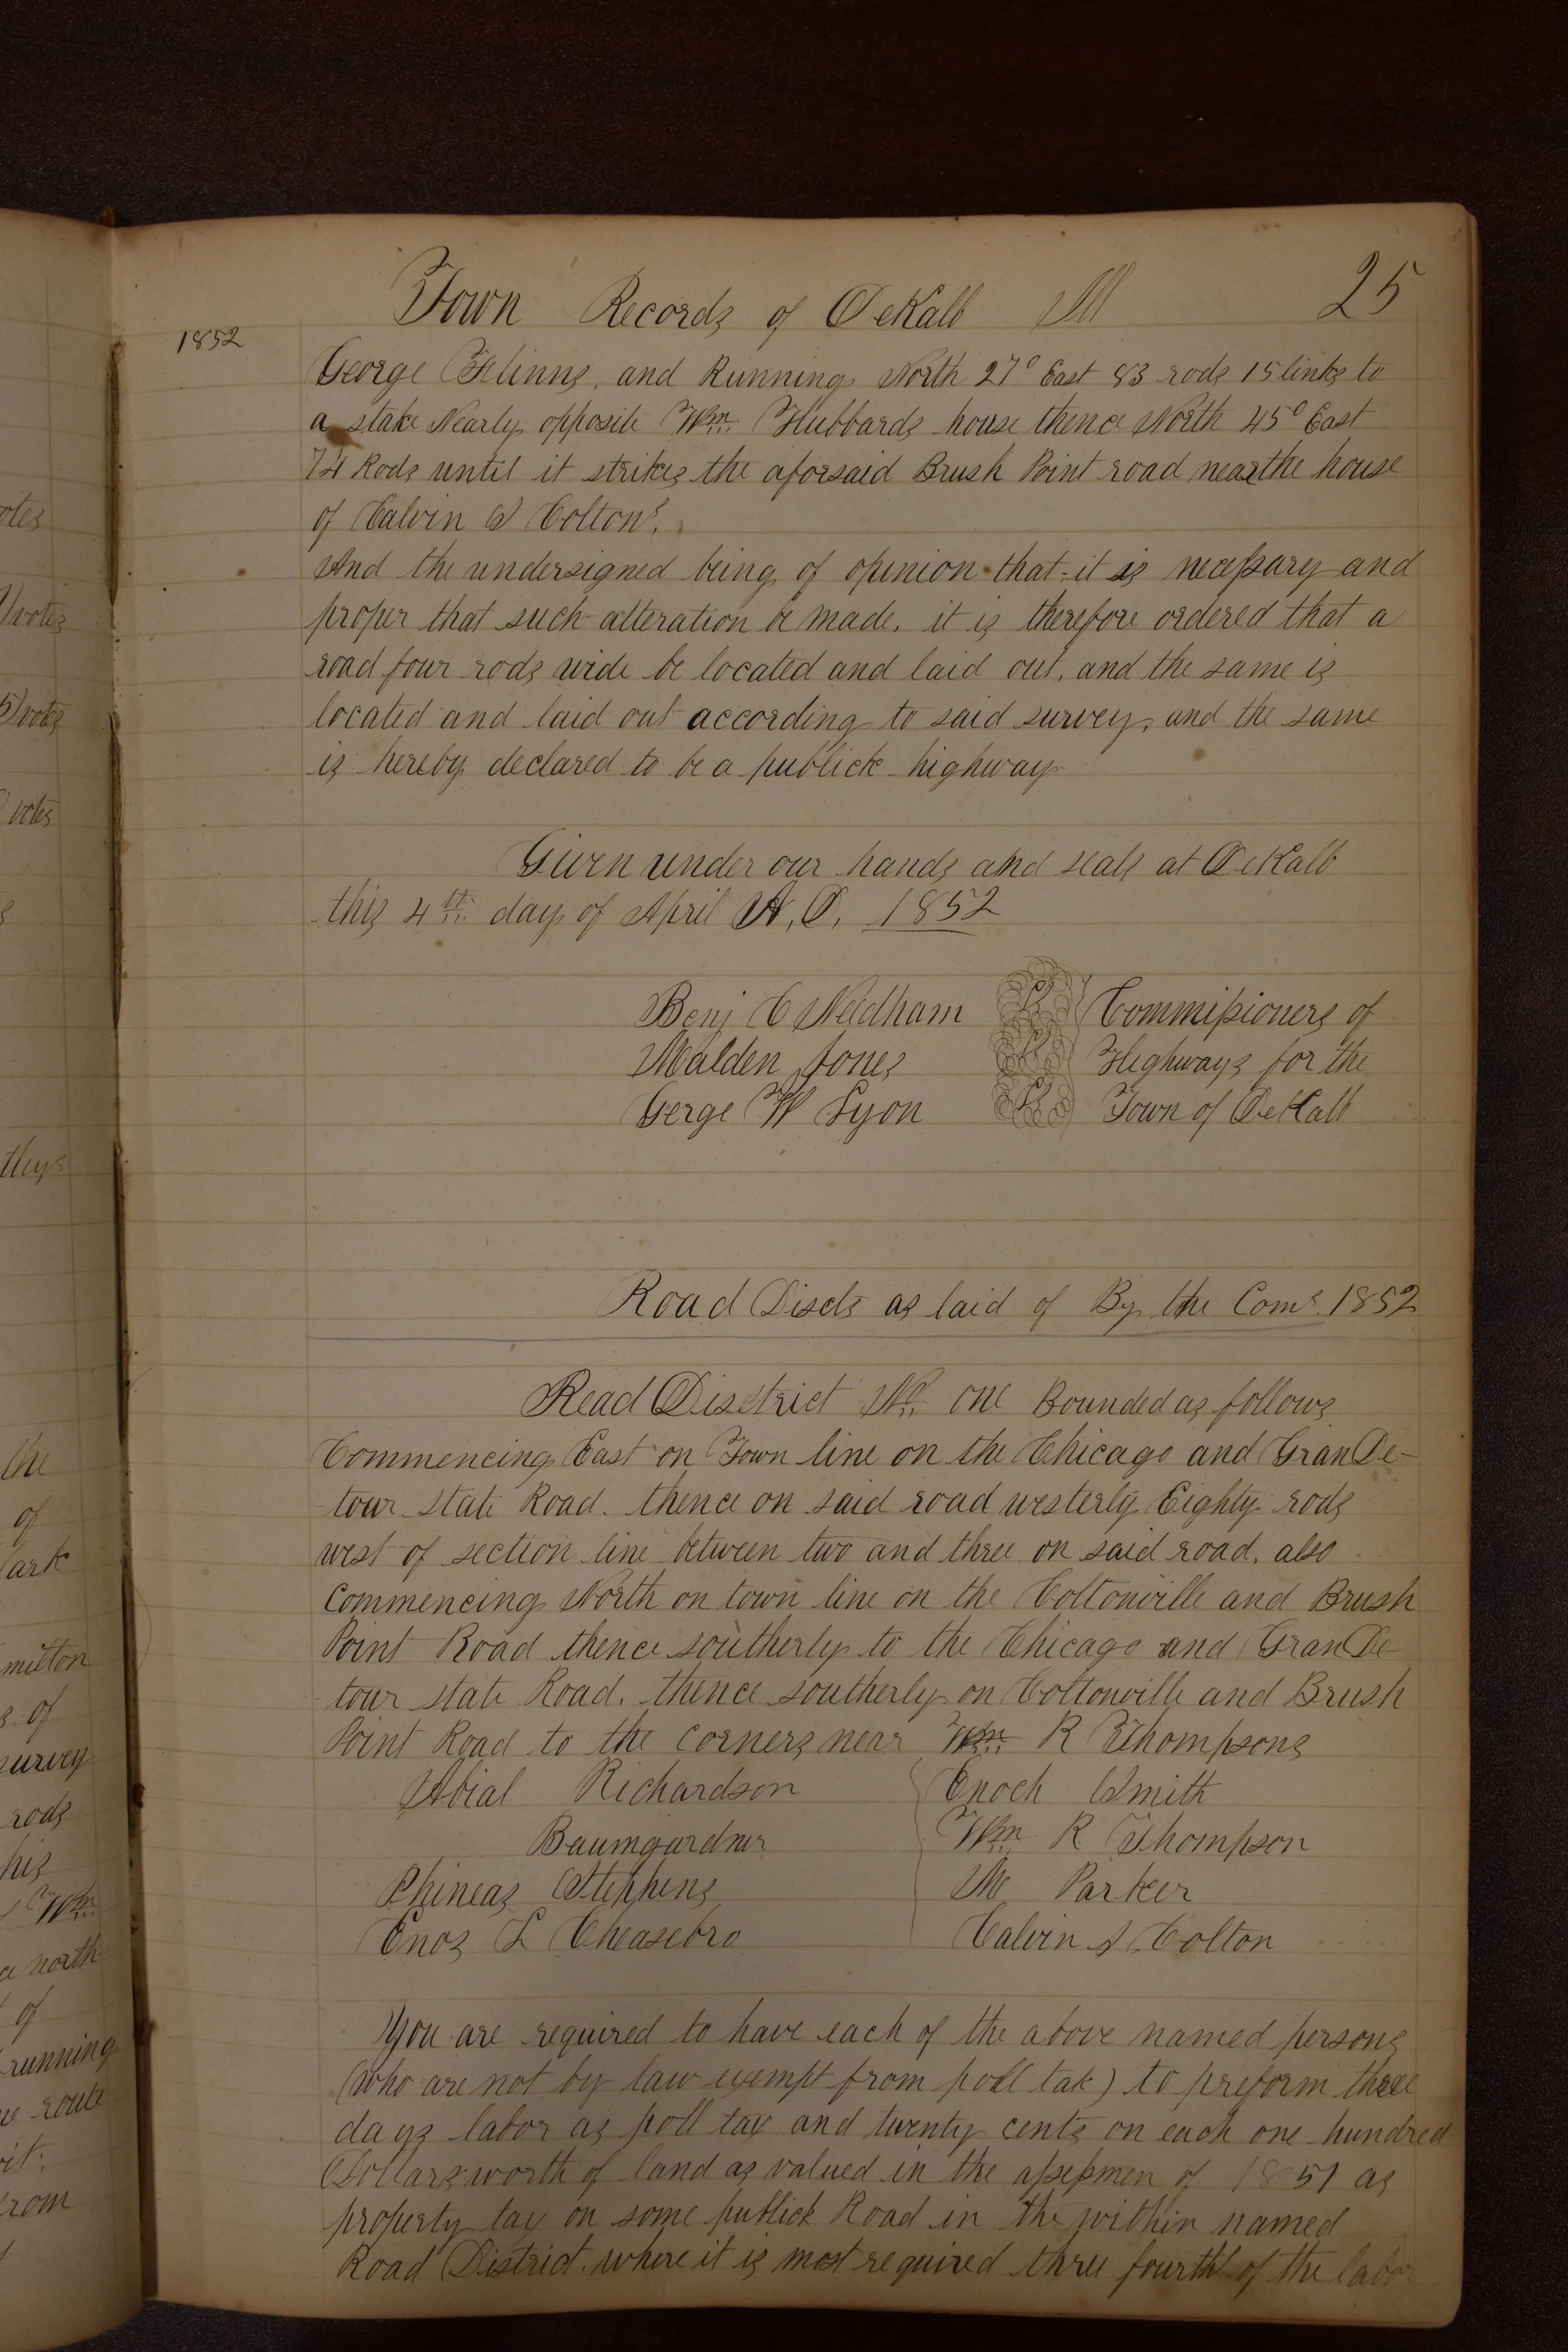 Town Records of DeKalb Ill 25
1852
George Flinns, and Running North 27° East 83 rods 15 links to
a stake Nearly opposite Wm Hubbards house thence North 45° East
74 Rods until it strikes the aforsaid Brush Point road near the house
of Calvin S Coltons.
And the undersigned being of opinion that it is necessary and
proper that such alteration be made, it is therefore ordered that a
road four rods wide be located and laid out, and the same is
located and laid out according to said survey, and the same
is hereby declared to be a publick highway
Given under our hands and seals at DeKalb
this 4th day of April A,D, 1852
Benj C Needham Commissioners of
Malden Jones Highways for the
Gerge W Lyon Town of DeKalb
Road Discts as laid of By the Coms 1852
Road District No one Bounded as follows
Commencing East on Town line on the Chicago and GranDe-
tour state Road. thence on said road westerly Eighty rods
west of section line between two and three on said road, also
Commencing North on town line on the Coltonville and Brush
Point Road thence southerly to the Chicago and GranDe-
tour state Road. thence southerly on Coltonville and Brush
Point Road to the Corners near Wm R Thompsons
Abial Richardson Enoch Smith
Baumgardner Wm R Thompson
Phineas Stephens Mc Parker
Enos L Cheasebro Calvin S Colton
You are required to have each of the above named persons
(who are not by law exempt from poll tax) to preform three
days labor as poll tax and twenty cents on each one hundred
Dollars worth of land as valued in the assessmen of 1851 as
property tax on some publick Road in the within named
Road District where it is most required three fourth of the labor
otes
votes
votes
votes
tleys
the
of
ark
milton
s of
survey
rods
his
Wm
north
of
running
route
rom